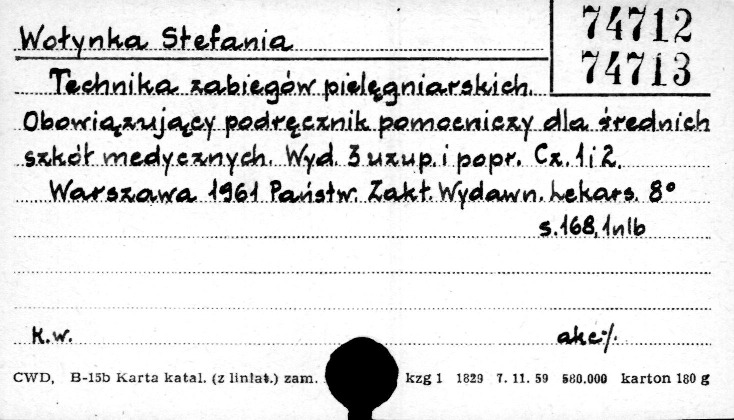 Wołynka Stefania
74712
74713
Technika zabiegów pielęgniarskich.
Obowiązujący podręcznik pomocniczy dla średnich
szkół medycznych. Wyd. 3 uzup. i popr. Cz. 1 i 2.
Warszawa 1961 Państw. Zakł. Wydawn. Lekars. 8°
s. 168, 1 nlb
K.w.
akc ·/.
CWD, B-15b Karta katal. (z liniat.) zam. kzg 1 1829 7. 11. 59 580.000 karton 180 g